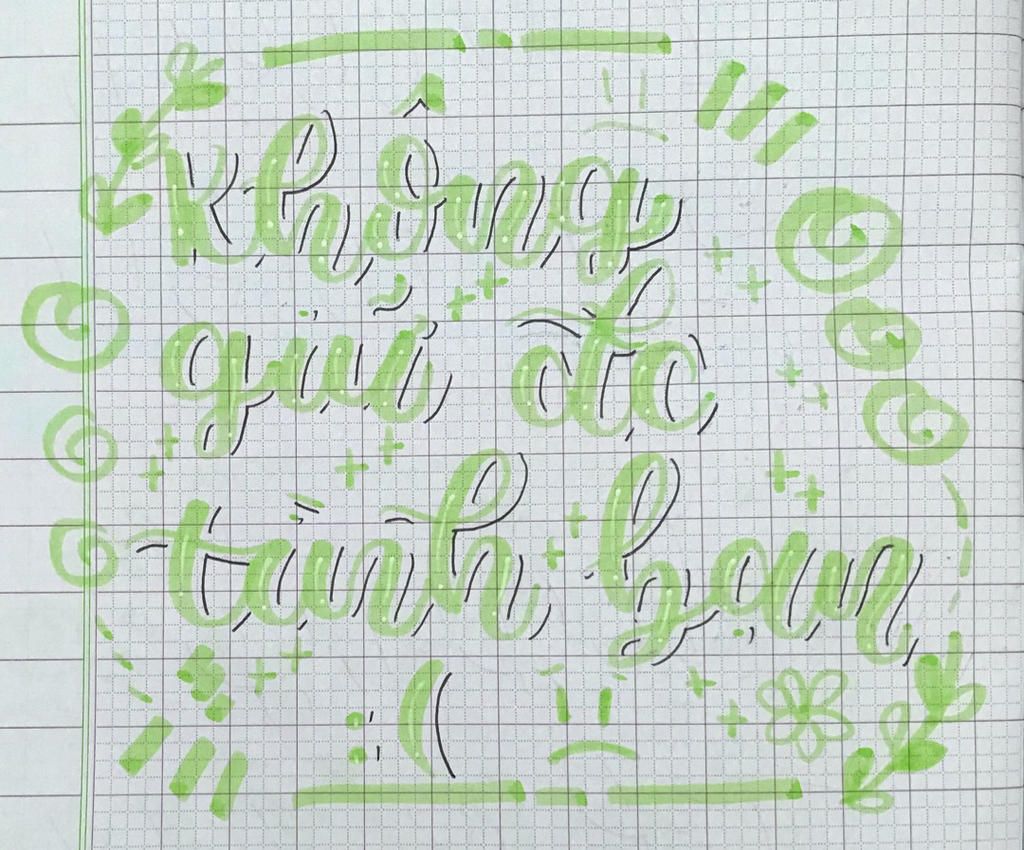 không
giữ đc
tình bạn
:(